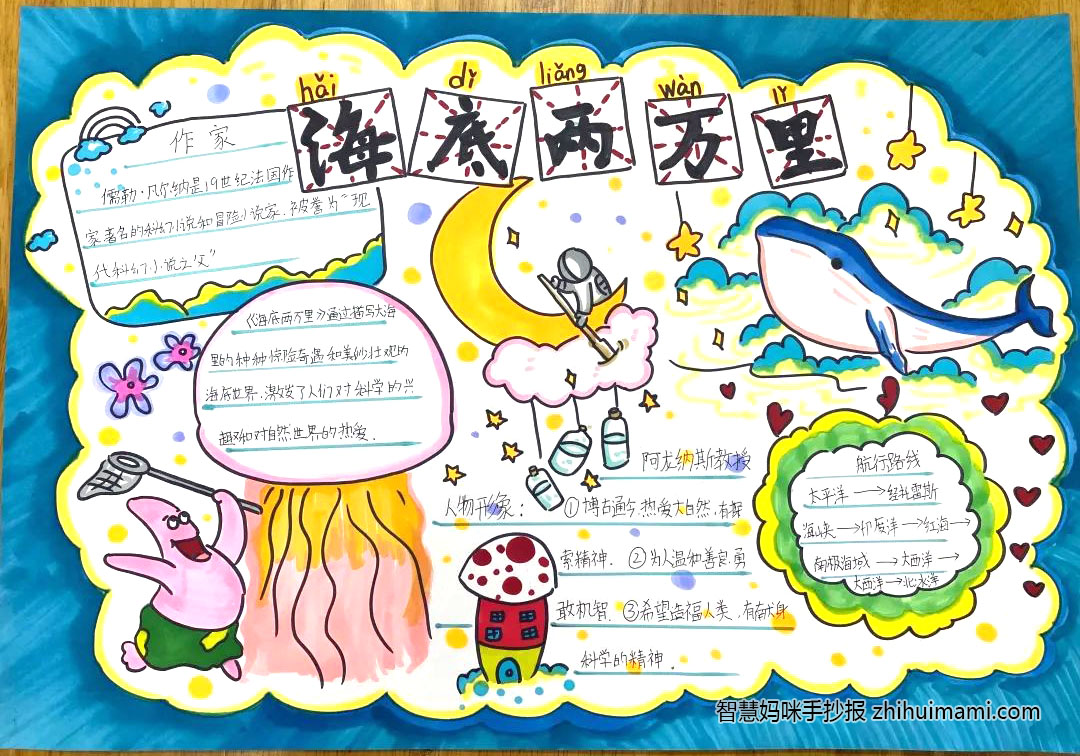 hǎi dǐ liǎng wàn lǐ
海底两万里
作家
儒勒·凡尔纳是19世纪法国作
家著名的科幻小说和冒险小说家.被誉为"现
代科幻小说之父"
《海底两万里》通过描写大海
里的种种惊险奇遇和美妙壮观的
海底世界.激发了人们对科学的兴
趣和对自然世界的热爱.
阿龙纳斯教授
人物形象: ①博古通今热爱大自然,有探
索精神. ②为人温和善良勇
敢机智. ③希望造福人类.有献身
科学的精神.
航行路线
太平洋→经托雷斯
海峡→印度洋→红海→
南极海域→大西洋→
大西洋→北冰洋
智慧妈咪手抄报 zhihuimami.com